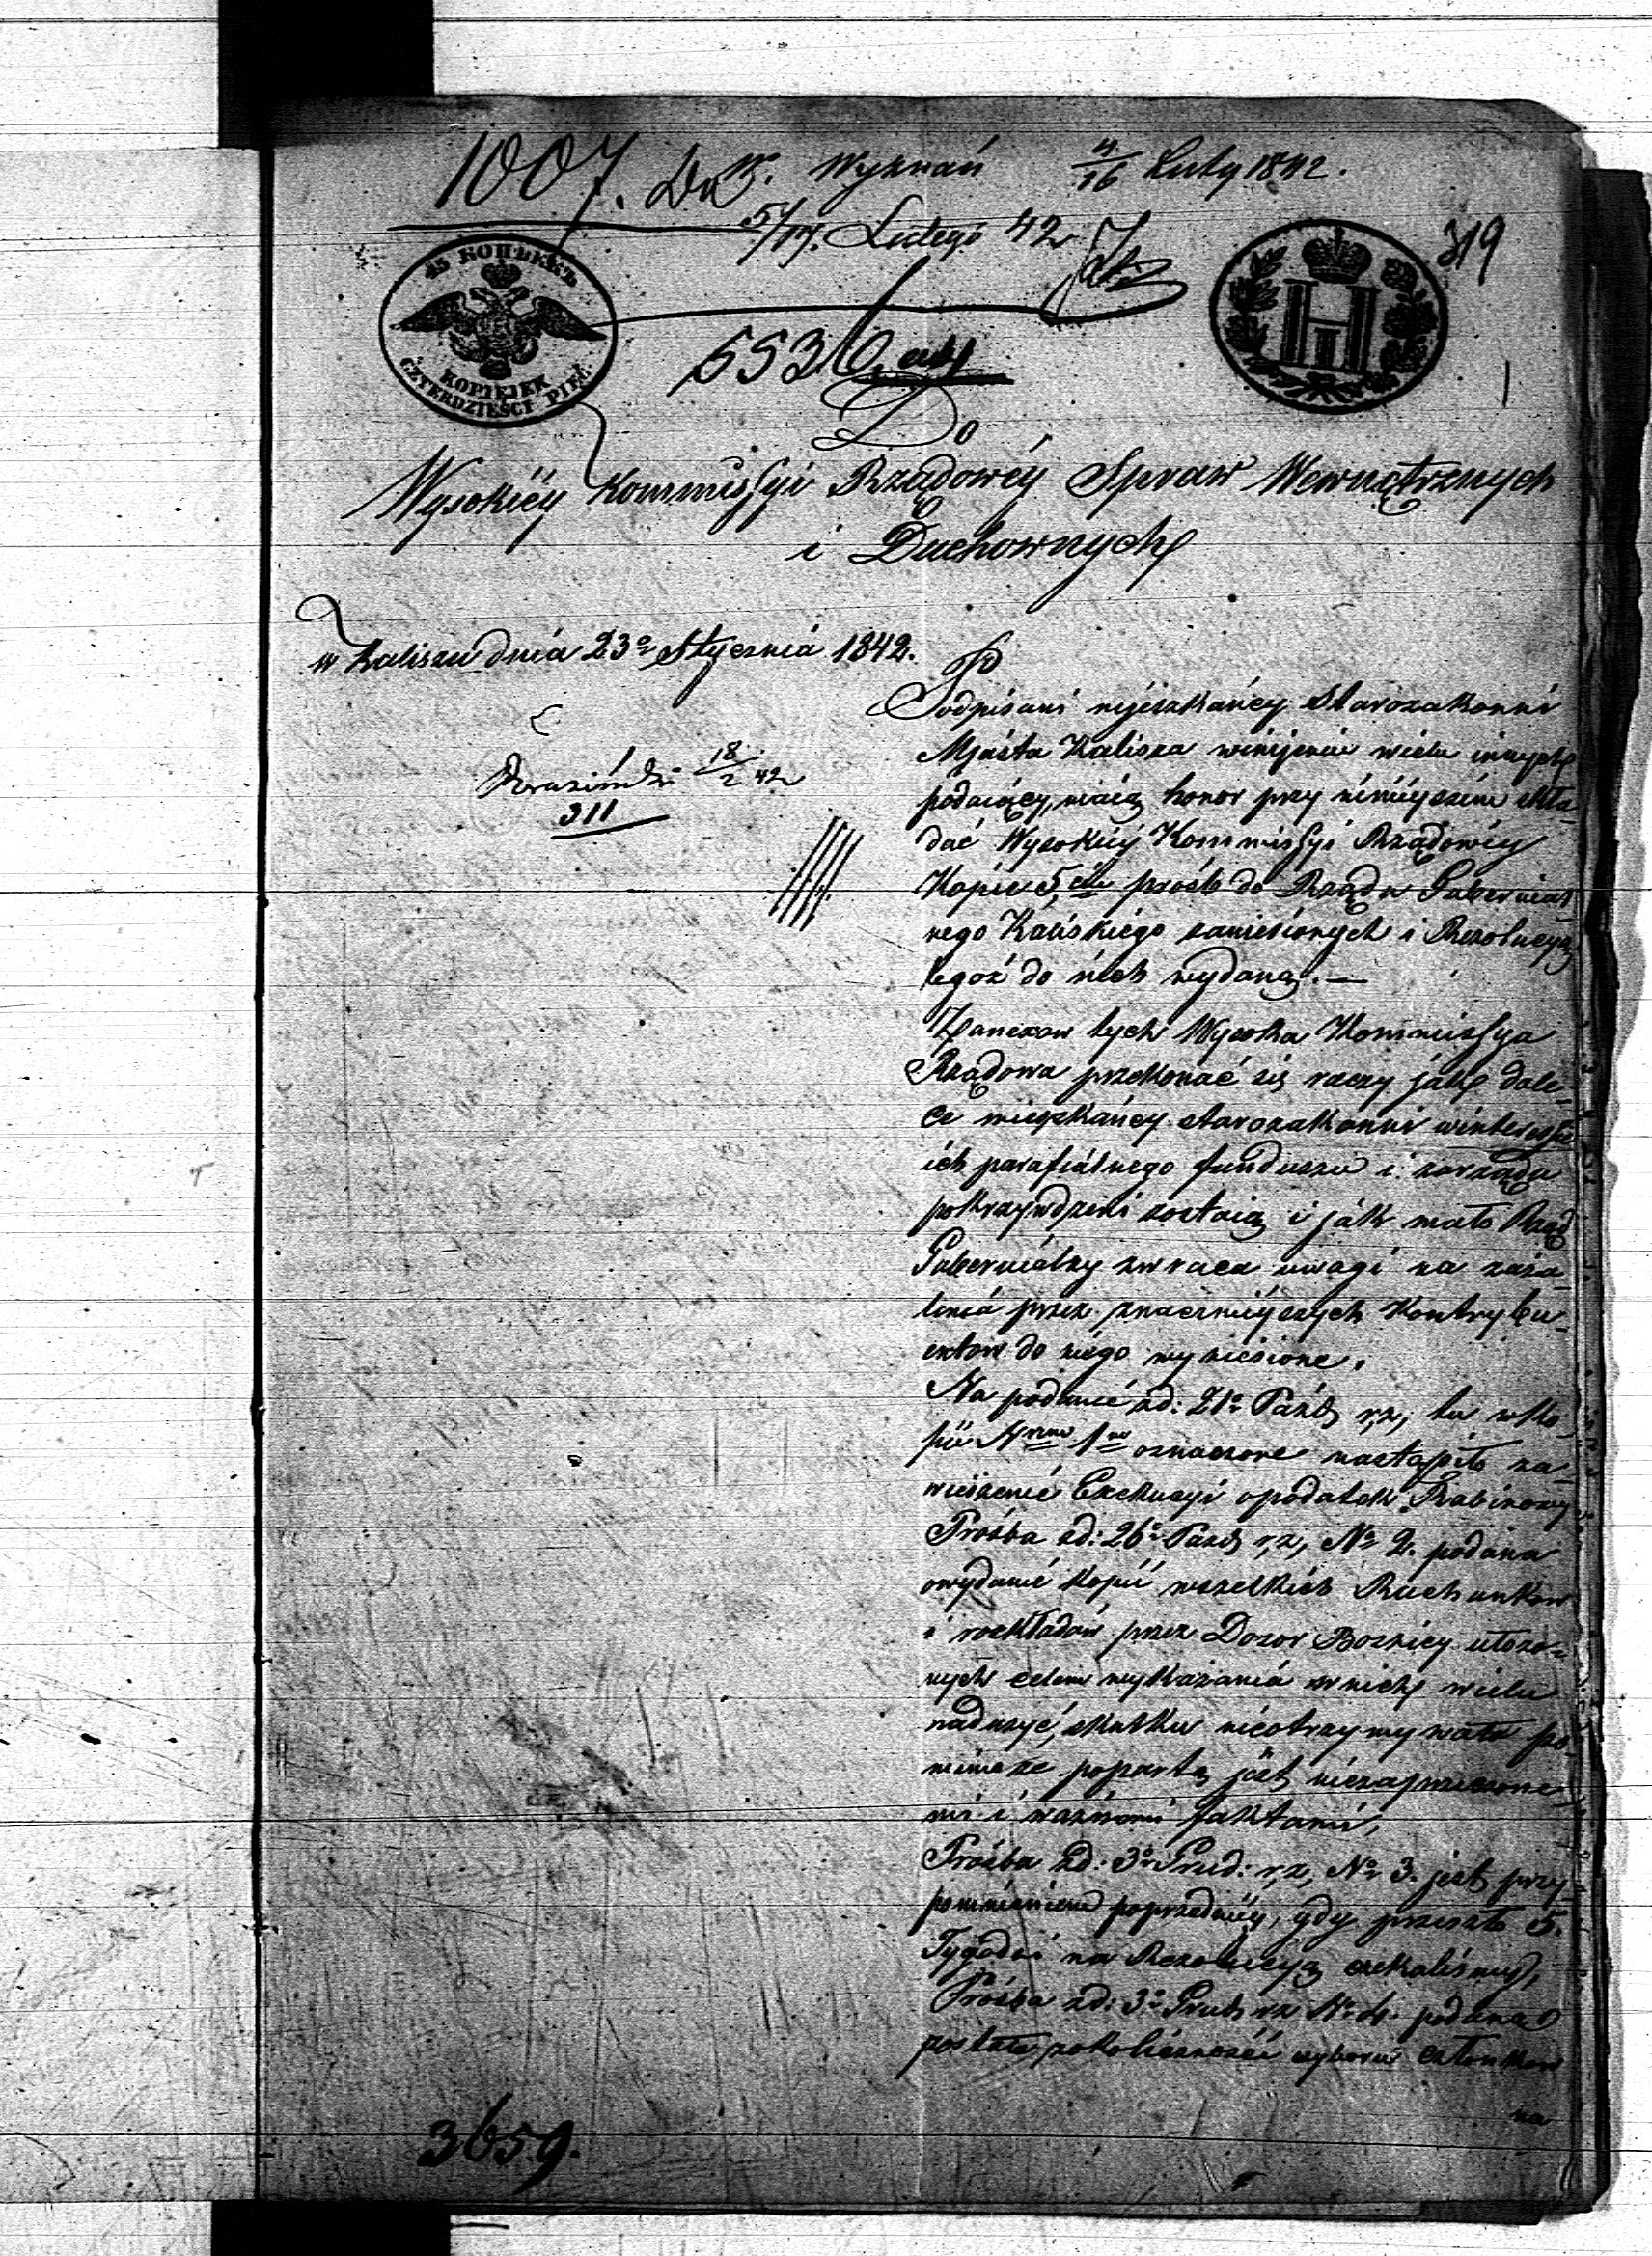 1007. Dn W. Wyznań 4/16 Luty 1842.
5/17. Lutego 42
319
45 КОПѢЕКЪ
KOPIEJEK
CZTERDZIEŚCI PIĘĆ
5536
Do
Wysokiéy Kommissyi Rządowéy Spraw Wewnętrznych
i Duchownych
w Kaliszu dnia 23º Stycznia 1842.
18/2 42
311
Podpisani mieszkańcy Starozakonni
Miásta Kalisza wimijeniu wielu innych
podaiący, maią honor przy niniéyszém skła-
dać Wysokiéy Kommissyi Rządowéy
Kopie 5 próśb do Rządu Gubernial-
nego Kaliskiégo zaniesionych i Rezolucyą
tegoż do nich wydaną. —
Zanexow tych Wysoka Kommissya
Rządowa przekonać się raczy ják dale-
ce mieszkańcy starozakonni winteressie
ich parafiálnego funduszu i zarządu
pokrzywdzeni zostaią i ják mało Rząd
Guberniálny zwraca uwagi na zaża-
lenia przez znacznieyszych Kontrybu-
entow do niégo wyniesione.
Na podanié zd: 21º Paźdz r,z, tu wko-
pii Nrem 1m oznaczone nastąpiło za-
wieszenié Exekucyi opodatek Rabinowy
Prośba zd: 26º Pazd r,z, Nº 2. podana
owydanié kopii wszelkich Rachunkow
i rozkładów przez Dozor Bozniczy ułożo-
nych celem wykazania wnich wielu
nadużyć, skutku nieotrzymywała po-
mimo że popartą jest niezaprzeczone-
mi i ważnemi faktami,
Prośba zd: 3º Grud: r,z, Nº 3. jest przy-
pomnieniem poprzedniéy, gdy przeszło 5.
Tygodni na Rezolucyą czekaliśmy,
Prośba zd: 3º Grud: rz Nº 4. podana
została zokoliczności wyboru członkow
na
3659.